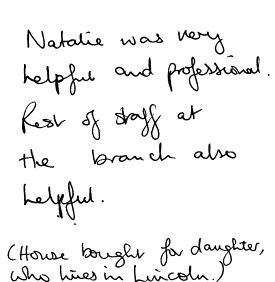 Natalie was very
helpful and professional.
Rest of staff at
the branch also
helpful.
(House bought for daughter,
who lives in Lincoln.)